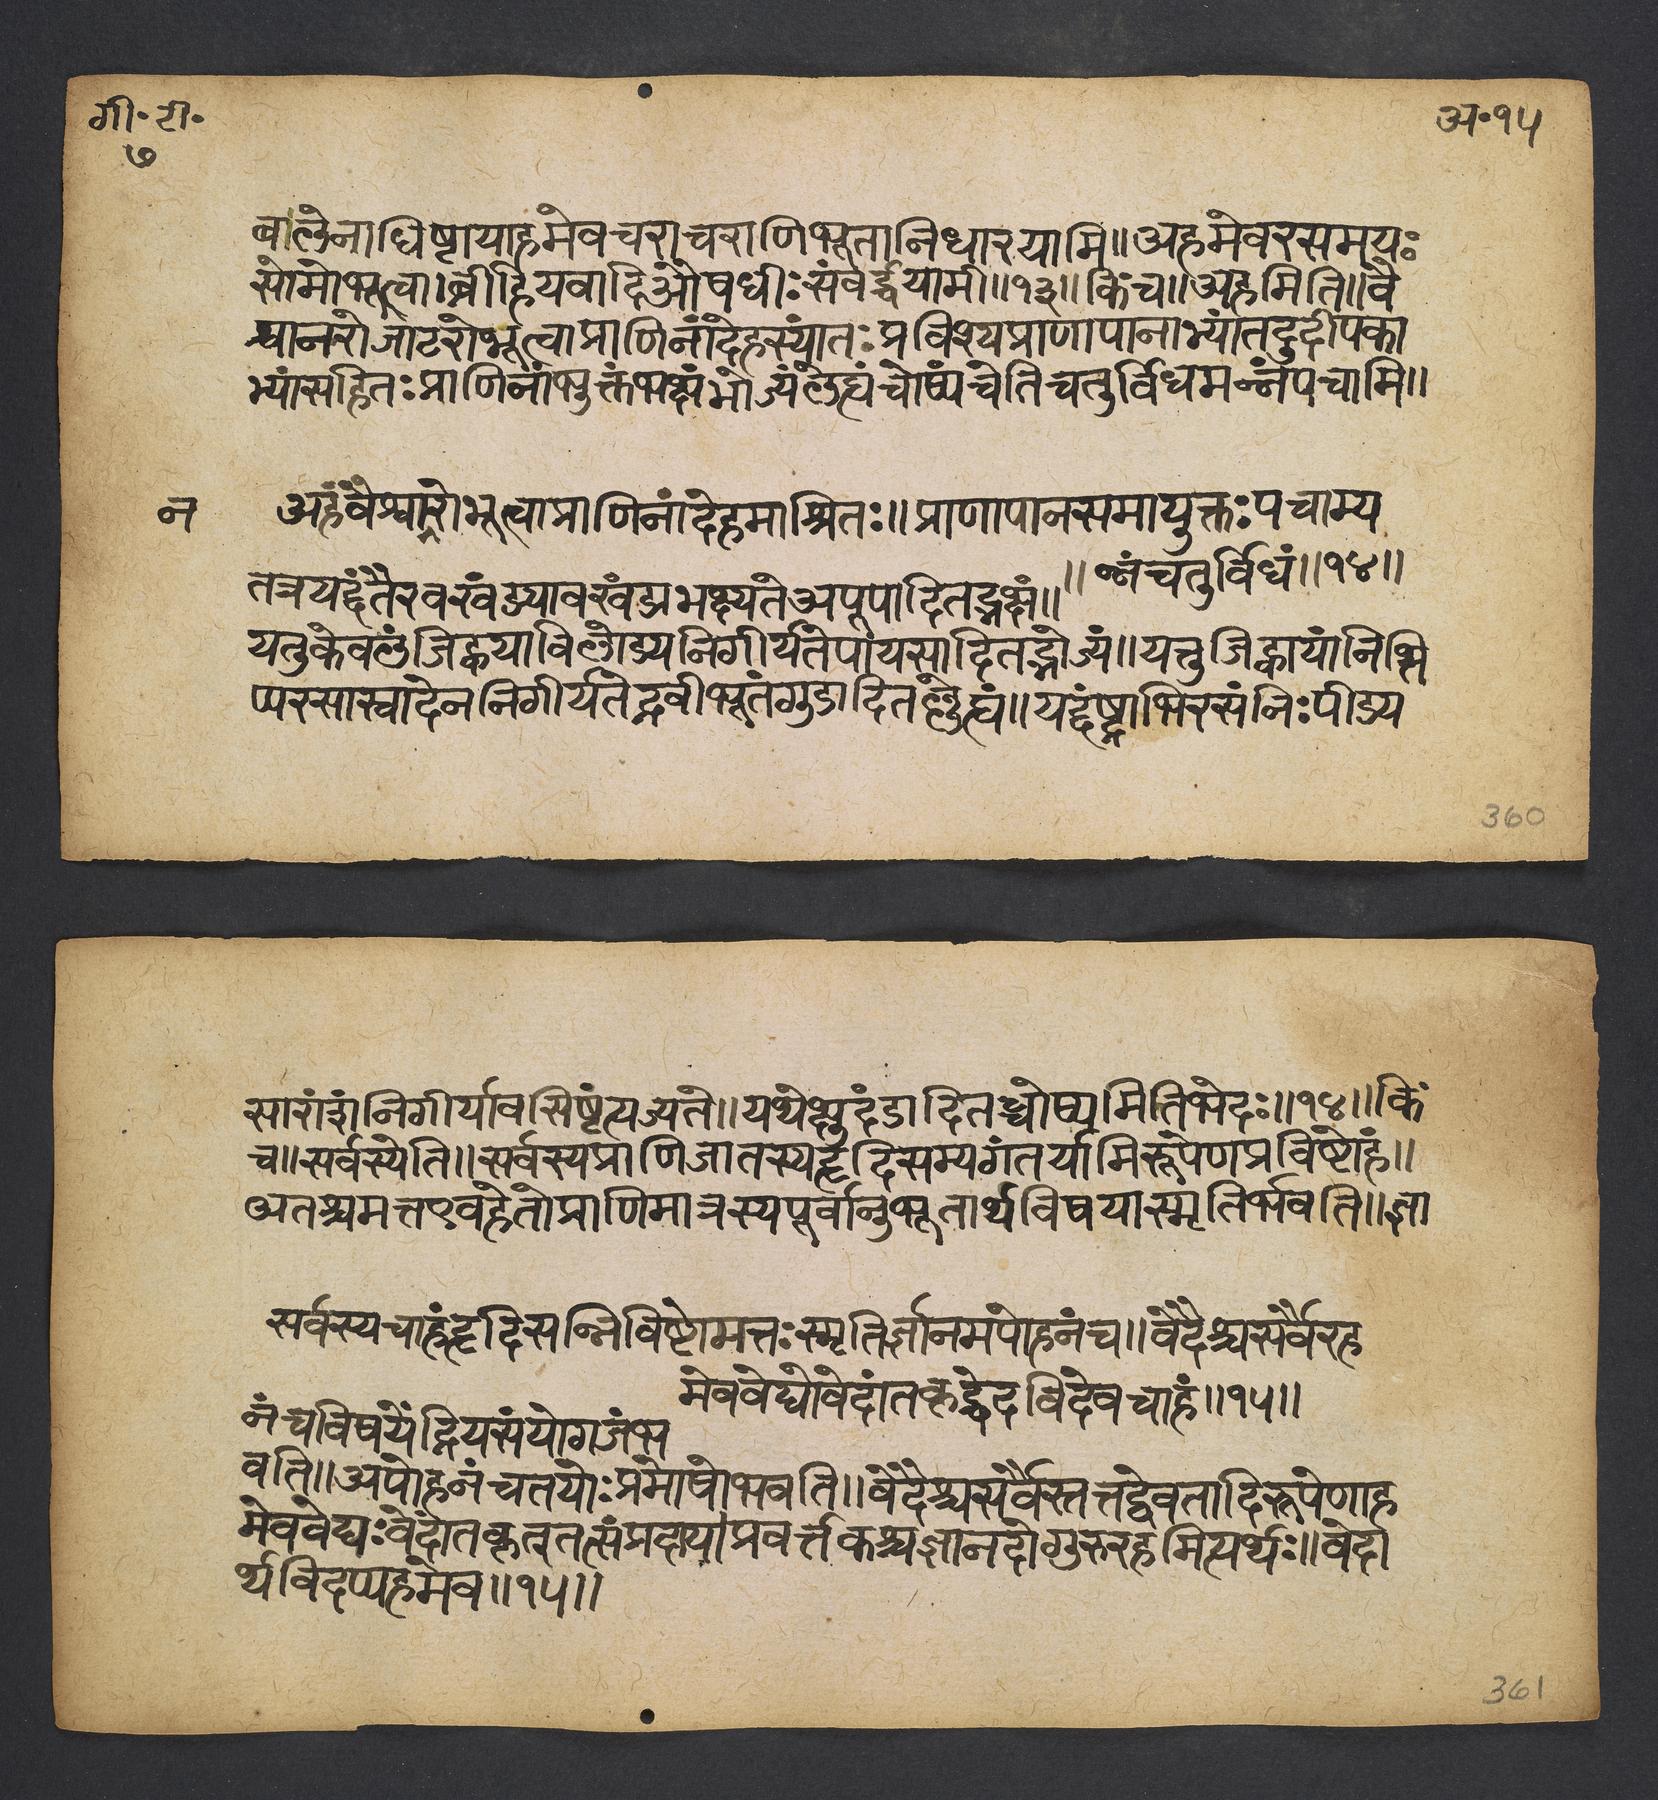 गी॰ टी॰
७
अ॰ १५
बालेनाधिष्टायाहमेवचराचराणिभूतानिधारयामि॥अहमेवरसमयः
सोमोभूत्वा।व्रीहियवादिओषधीःसंवर्द्धयामी॥१३॥किंच॥अहमिति॥वै
श्वानरोजाटरोभूत्वाप्राणिनांदेहस्यांतःप्रविश्यप्राणापानाभ्यांतदुदीपका
भ्यांसहितःप्राणिनांभुक्तंभक्ष्यंभोज्यंलेह्यंचोष्यंचेतिचतुर्विधमन्नंपचामि॥
न
अहंवैश्वारोभूत्वाप्राणिनांदेहमाश्रितः॥प्राणापानसमायुक्तःपचाम्य
न्नंचतुर्विधं॥१४॥
तत्रयद्दंतैरवखंड्यावखंड्यभक्ष्यतेअपूपादितद्भक्ष्यं॥
यत्तुकेवलंजिह्वयाविलोड्यनिगीर्यतेपायसादितद्भोज्यं॥यत्तुजिह्वायांनिक्षि
प्यरसास्वादेननिगीर्यतेद्रवीभूतंगुडादितल्लेह्यं॥यद्दंष्ट्राभिरसंनिःपीड्य
360
सारांशंनिगीर्यावसिष्टंत्यज्यते॥यथेक्षुदंडादितच्चोष्यमितिभेदः॥१४॥किं
च॥सर्वस्येति॥सर्वस्यप्राणिजातस्यहृदिसम्यगंतर्यामिरूपेणप्रविष्टोहं॥
अतश्चमत्तएवहेतोप्राणिमात्रस्यपूर्वानुभूतार्थविषयास्मृतिर्भवति॥ज्ञा
सर्वस्यचाहंहृदिसन्निविष्टोमत्तःस्मृतिर्ज्ञानमपोहनंच॥वेदैश्चसर्वैरह
मेववेद्योवेदांतकृद्वेदविदेवचाहं॥१५॥
नंचविषयेंद्रियसंयोगजंभ
वति॥अपोहनंचतयोःप्रमोषोभवति॥वेदैश्चसर्वैस्तत्तद्देवतादिरूपेणाह
मेववेद्यःवेदांतकृत्तत्संप्रदायप्रवर्त्तकश्चज्ञानदोगुरुरहमित्यर्थः॥वेदा
र्थविदप्यहमेव॥१५॥
361